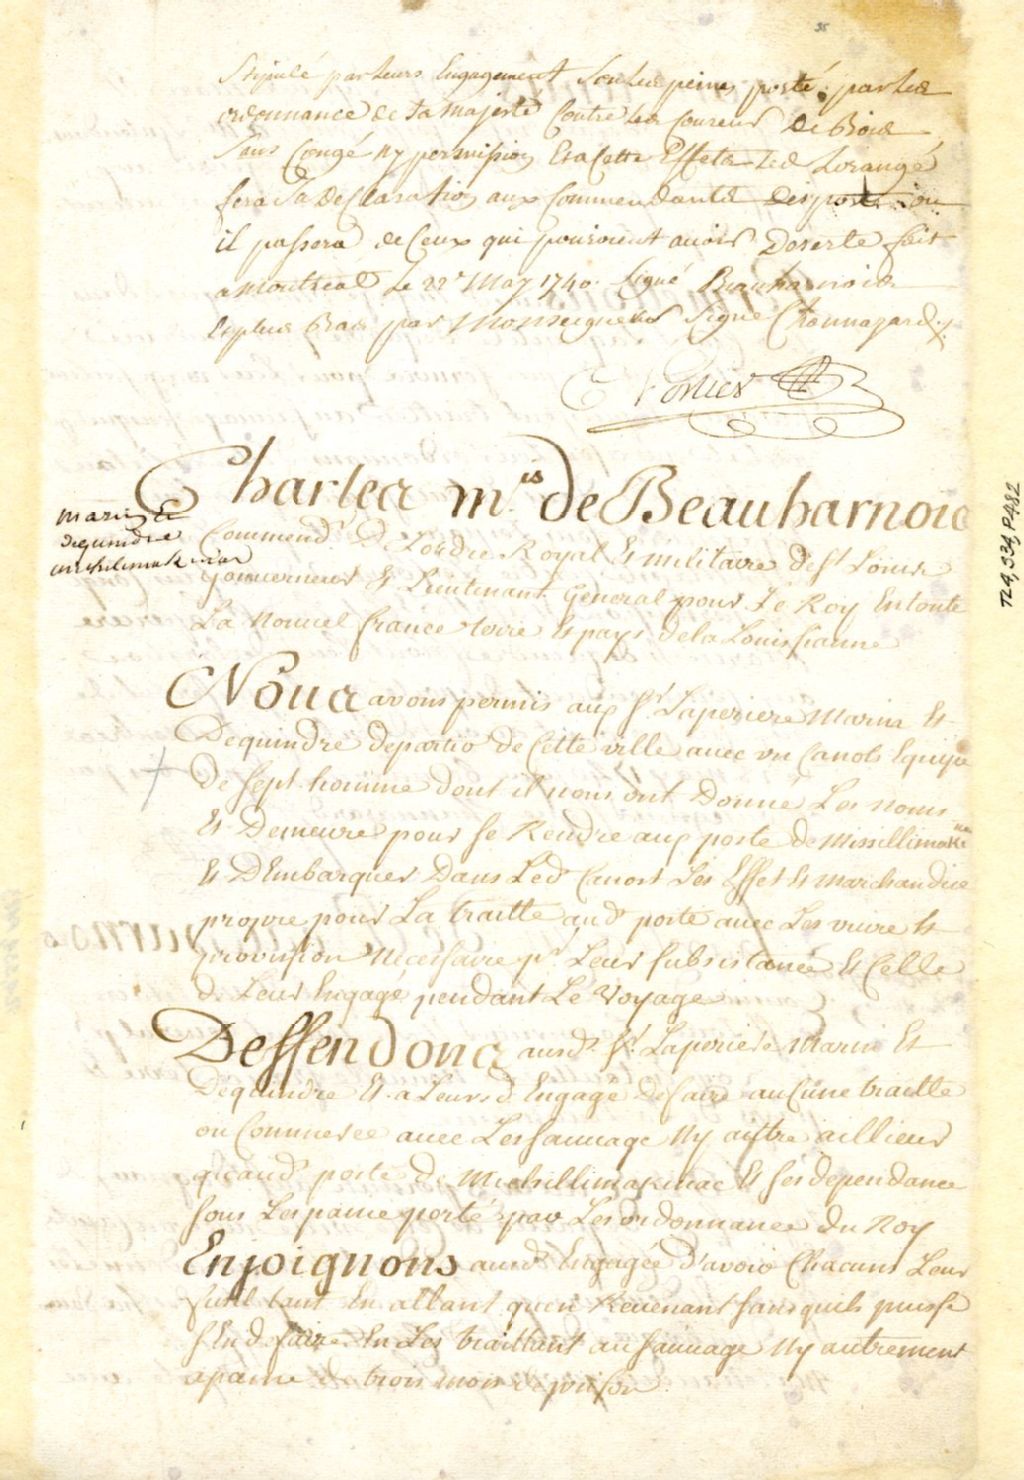 Stipulé par leurs Engagement sous les peines porté par les
ordonnance de sa majesté Contre les Coureur de Bois
Sans Congé ny permission Et a cette Effets led Lorangé
fera sa declaration aux Commendants des poste ou
il passera de Ceux qui pouroient avoir Deserté fait
a montreal le 22e. May 1740. signé Beauharnois
Et plus bas par Monseigneur signé Chonnazard.
Porlier
Charles m.is de Beauharnois
marin Et
dequindre
michilimakinac
Commend.r De Lordre Royal Et militaire de st Louis
gouverneur Et Lieutenant General pour Le Roy En toute
La Nouvel france terre Et pays de la Louissianne
Nous avons permis aux srs Laperiere Marin Et
Dequindre departir de Cette ville avec un Canots Equipé
De sept homme dont il nous ont Donné Les noms
Et Demeure pour se Rendre aux poste de Missillimaki
nac
Et DEmbarquer Dans Led. Canost Les Effet Et marchandise
propre pour La traitte aud. poste avec Les vivre Et
provision Necessaire pr. Leur subsistance Et Celle
de Leur Engagé pendant Le Voyage
Deffendons ausd. srs Laperiere Marin Et
Dequindre Et a Leursd Engagé de faire aucune traitte
ou Commerce avec Les sauvage Ny aistre aillieur
quaud. poste de Michillimakinac Et ses dependance
sous Les paine porté par Les ordonnance du Roy
Enjoignons ausd. Engagée d'avoir Chacuns Leur
fusil tant En allant quen Revenant sans quils puisse
sEn defaire En Les traittant au sauvage Ny autrement
apaine de trois mois de prison
T24,534,P482